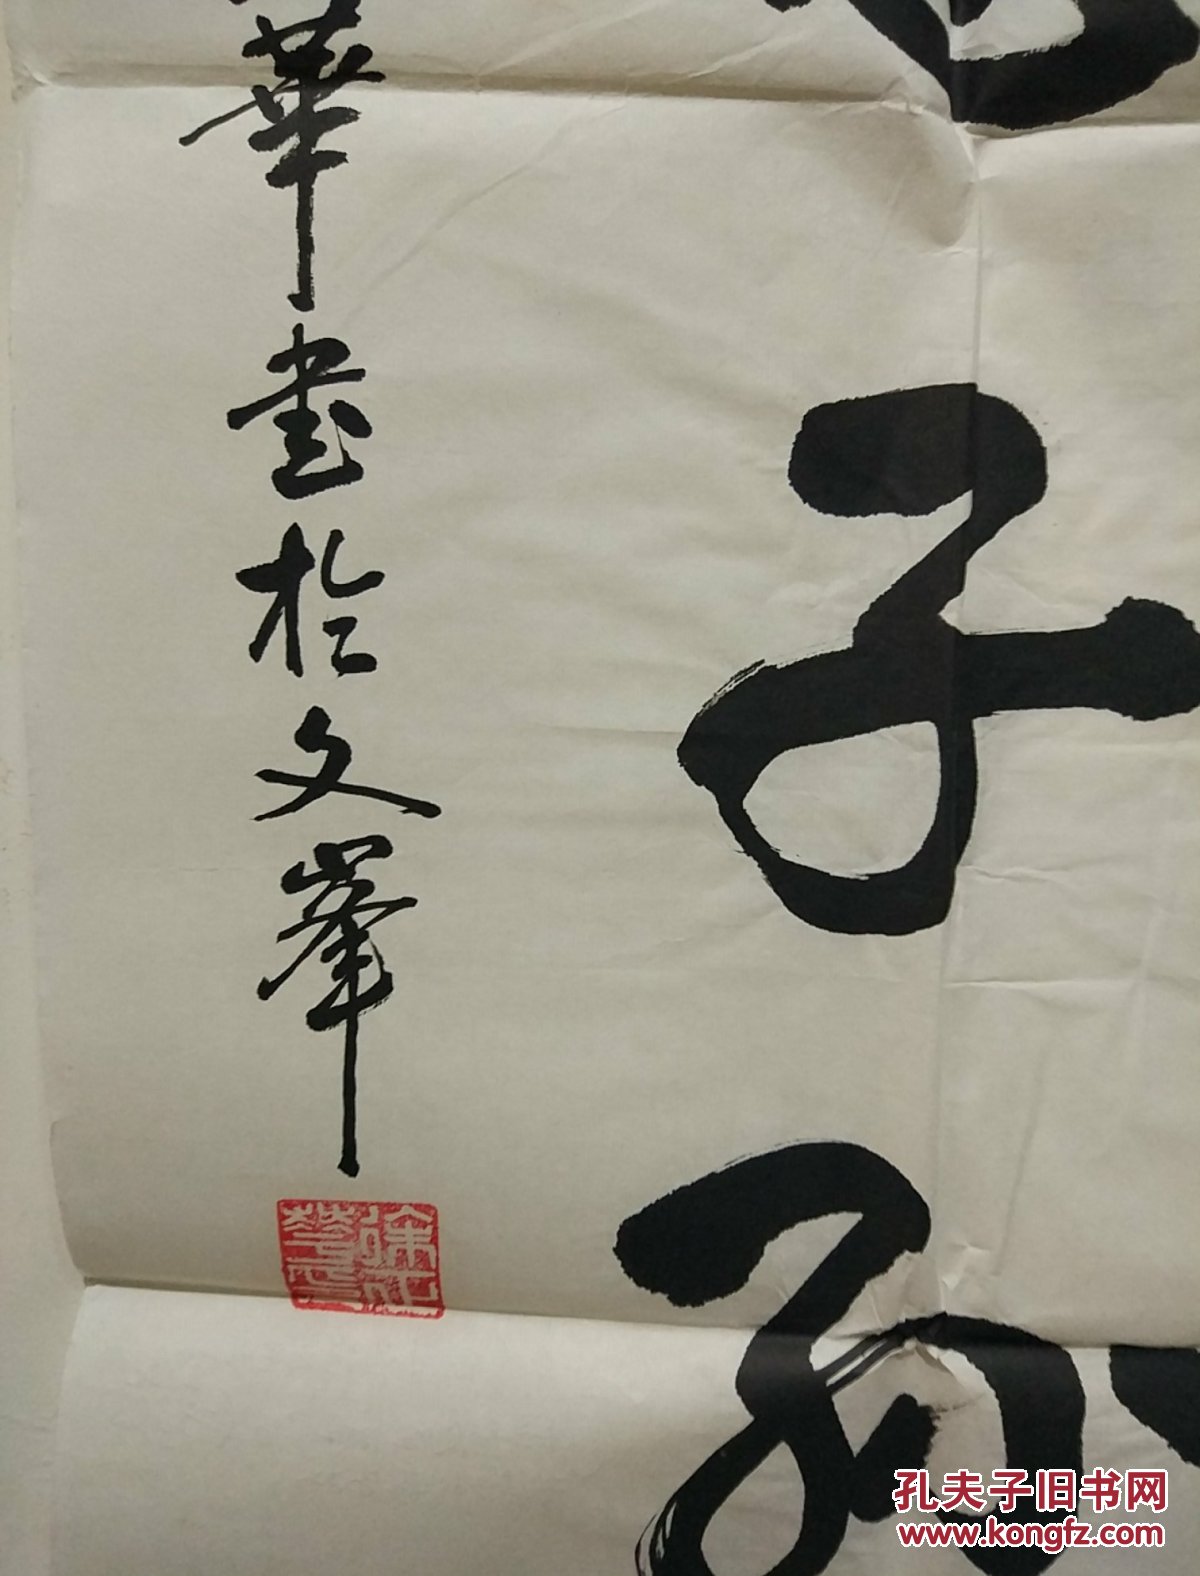 子孫
華書於文峯
孔夫子旧书网
www.kongfz.com